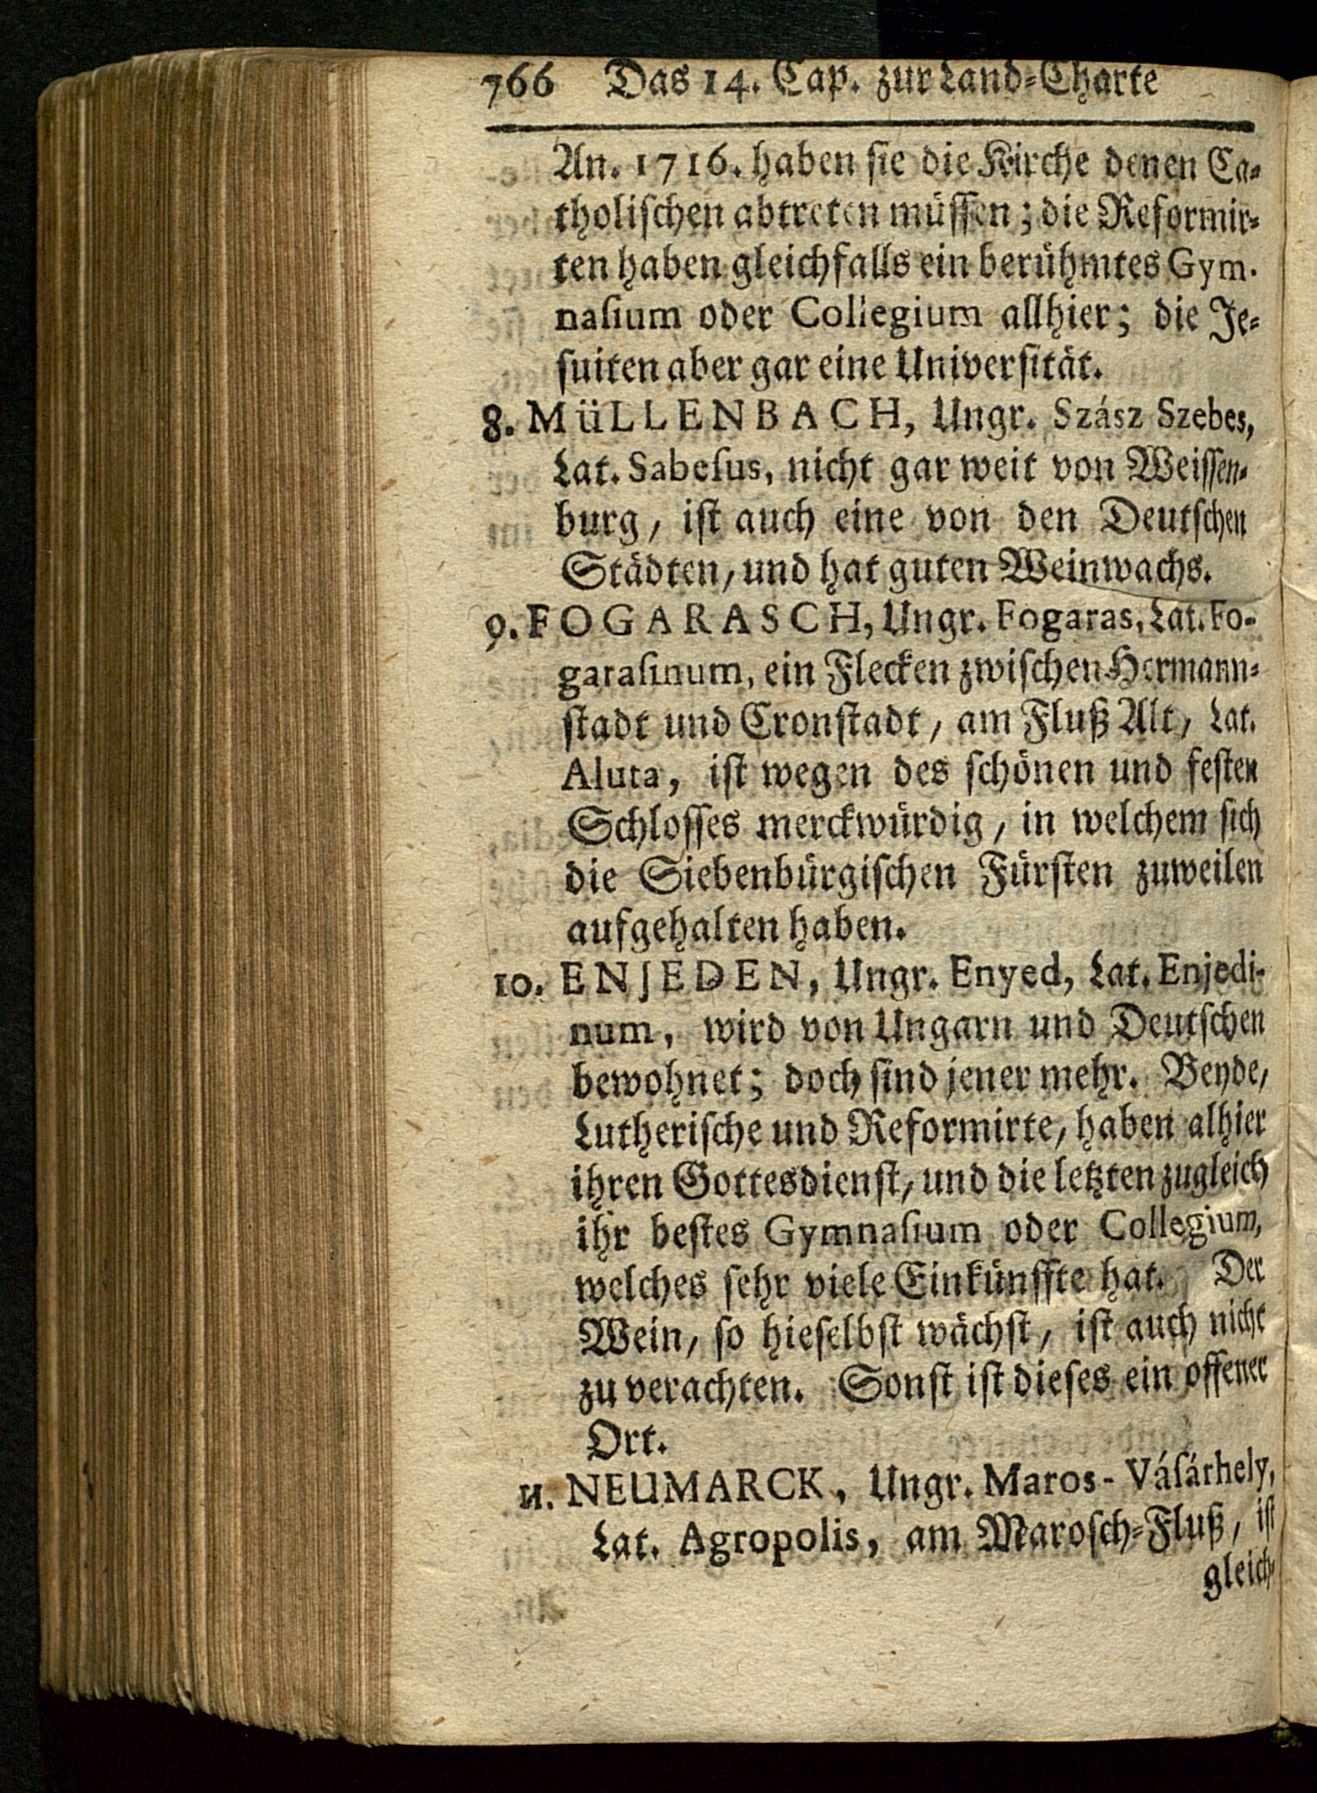 766 Das 14. Cap. zur Land-Charte
An. 1716. haben sie die Kirche denen Ca-
tholischen abtreten müssen; die Reformir-
ten haben gleichfalls ein berühmtes Gym-
nasium oder Collegium allhier; die Je-
suiten aber gar eine Universität.
8. MüLLENBACH, Ungr. Szász Szebes,
Lat. Sabesus, nicht gar weit von Weissen-
burg, ist auch eine von den Deutschen
Städten, und hat guten Weinwachs.
9. FOGARASCH, Ungr. Fogaras, Lat. Fo-
garasinum, ein Flecken zwischen Hermann-
stadt und Cronstadt, am Fluß Alt, Lat.
Aluta, ist wegen des schönen und festen
Schlosses merckwürdig, in welchem sich
die Siebenbürgischen Fürsten zuweilen
aufgehalten haben.
10. ENJEDEN, Ungr. Enyed, Lat. Enjedi-
num, wird von Ungarn und Deutschen
bewohnet; doch sind jener mehr. Beyde,
Lutherische und Reformirte, haben alhier
ihren Gottesdienst, und die letzten zugleich
ihr bestes Gymnasium oder Collegium,
welches sehr viele Einkünffte hat. Der
Wein, so hieselbst wächst, ist auch nicht
zu verachten. Sonst ist dieses ein offener
Ort.
11. NEUMARCK, Ungr. Maros-Vásárhely,
Lat. Agropolis, am Marosch-Fluß, ist
gleich-